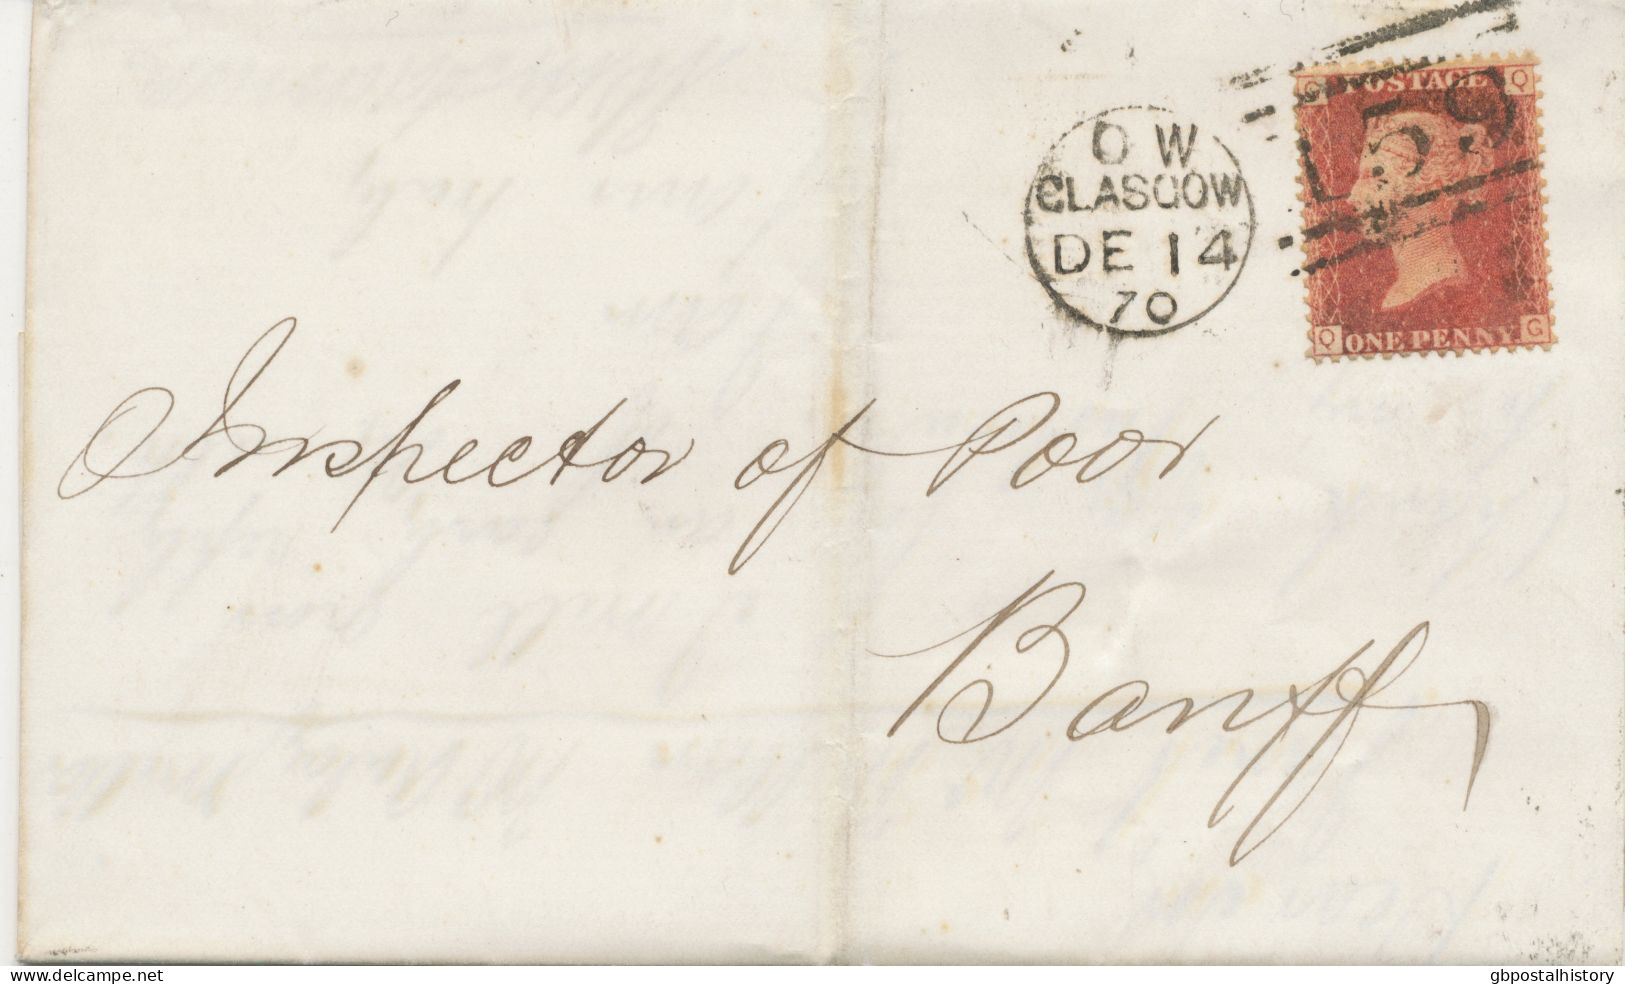 O W
GLASGOW
DE 14
70
159
G Q
POSTAGE
Q G
ONE PENNY
Inspector of Poor
Banff,
www.delcampe.net
gbpostalhistory